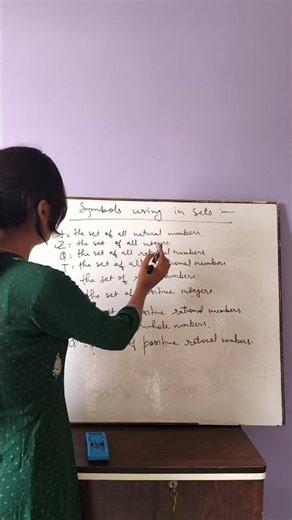 Symbols using in Sets :-
= the set of all natural numbers.
Z = the set of all integers
Q = the set of all rational numbers
T = the set of all numbers
the set of numbers
the set of positive integers
positive rational numbers
whole numbers.
of positive rational numbers.